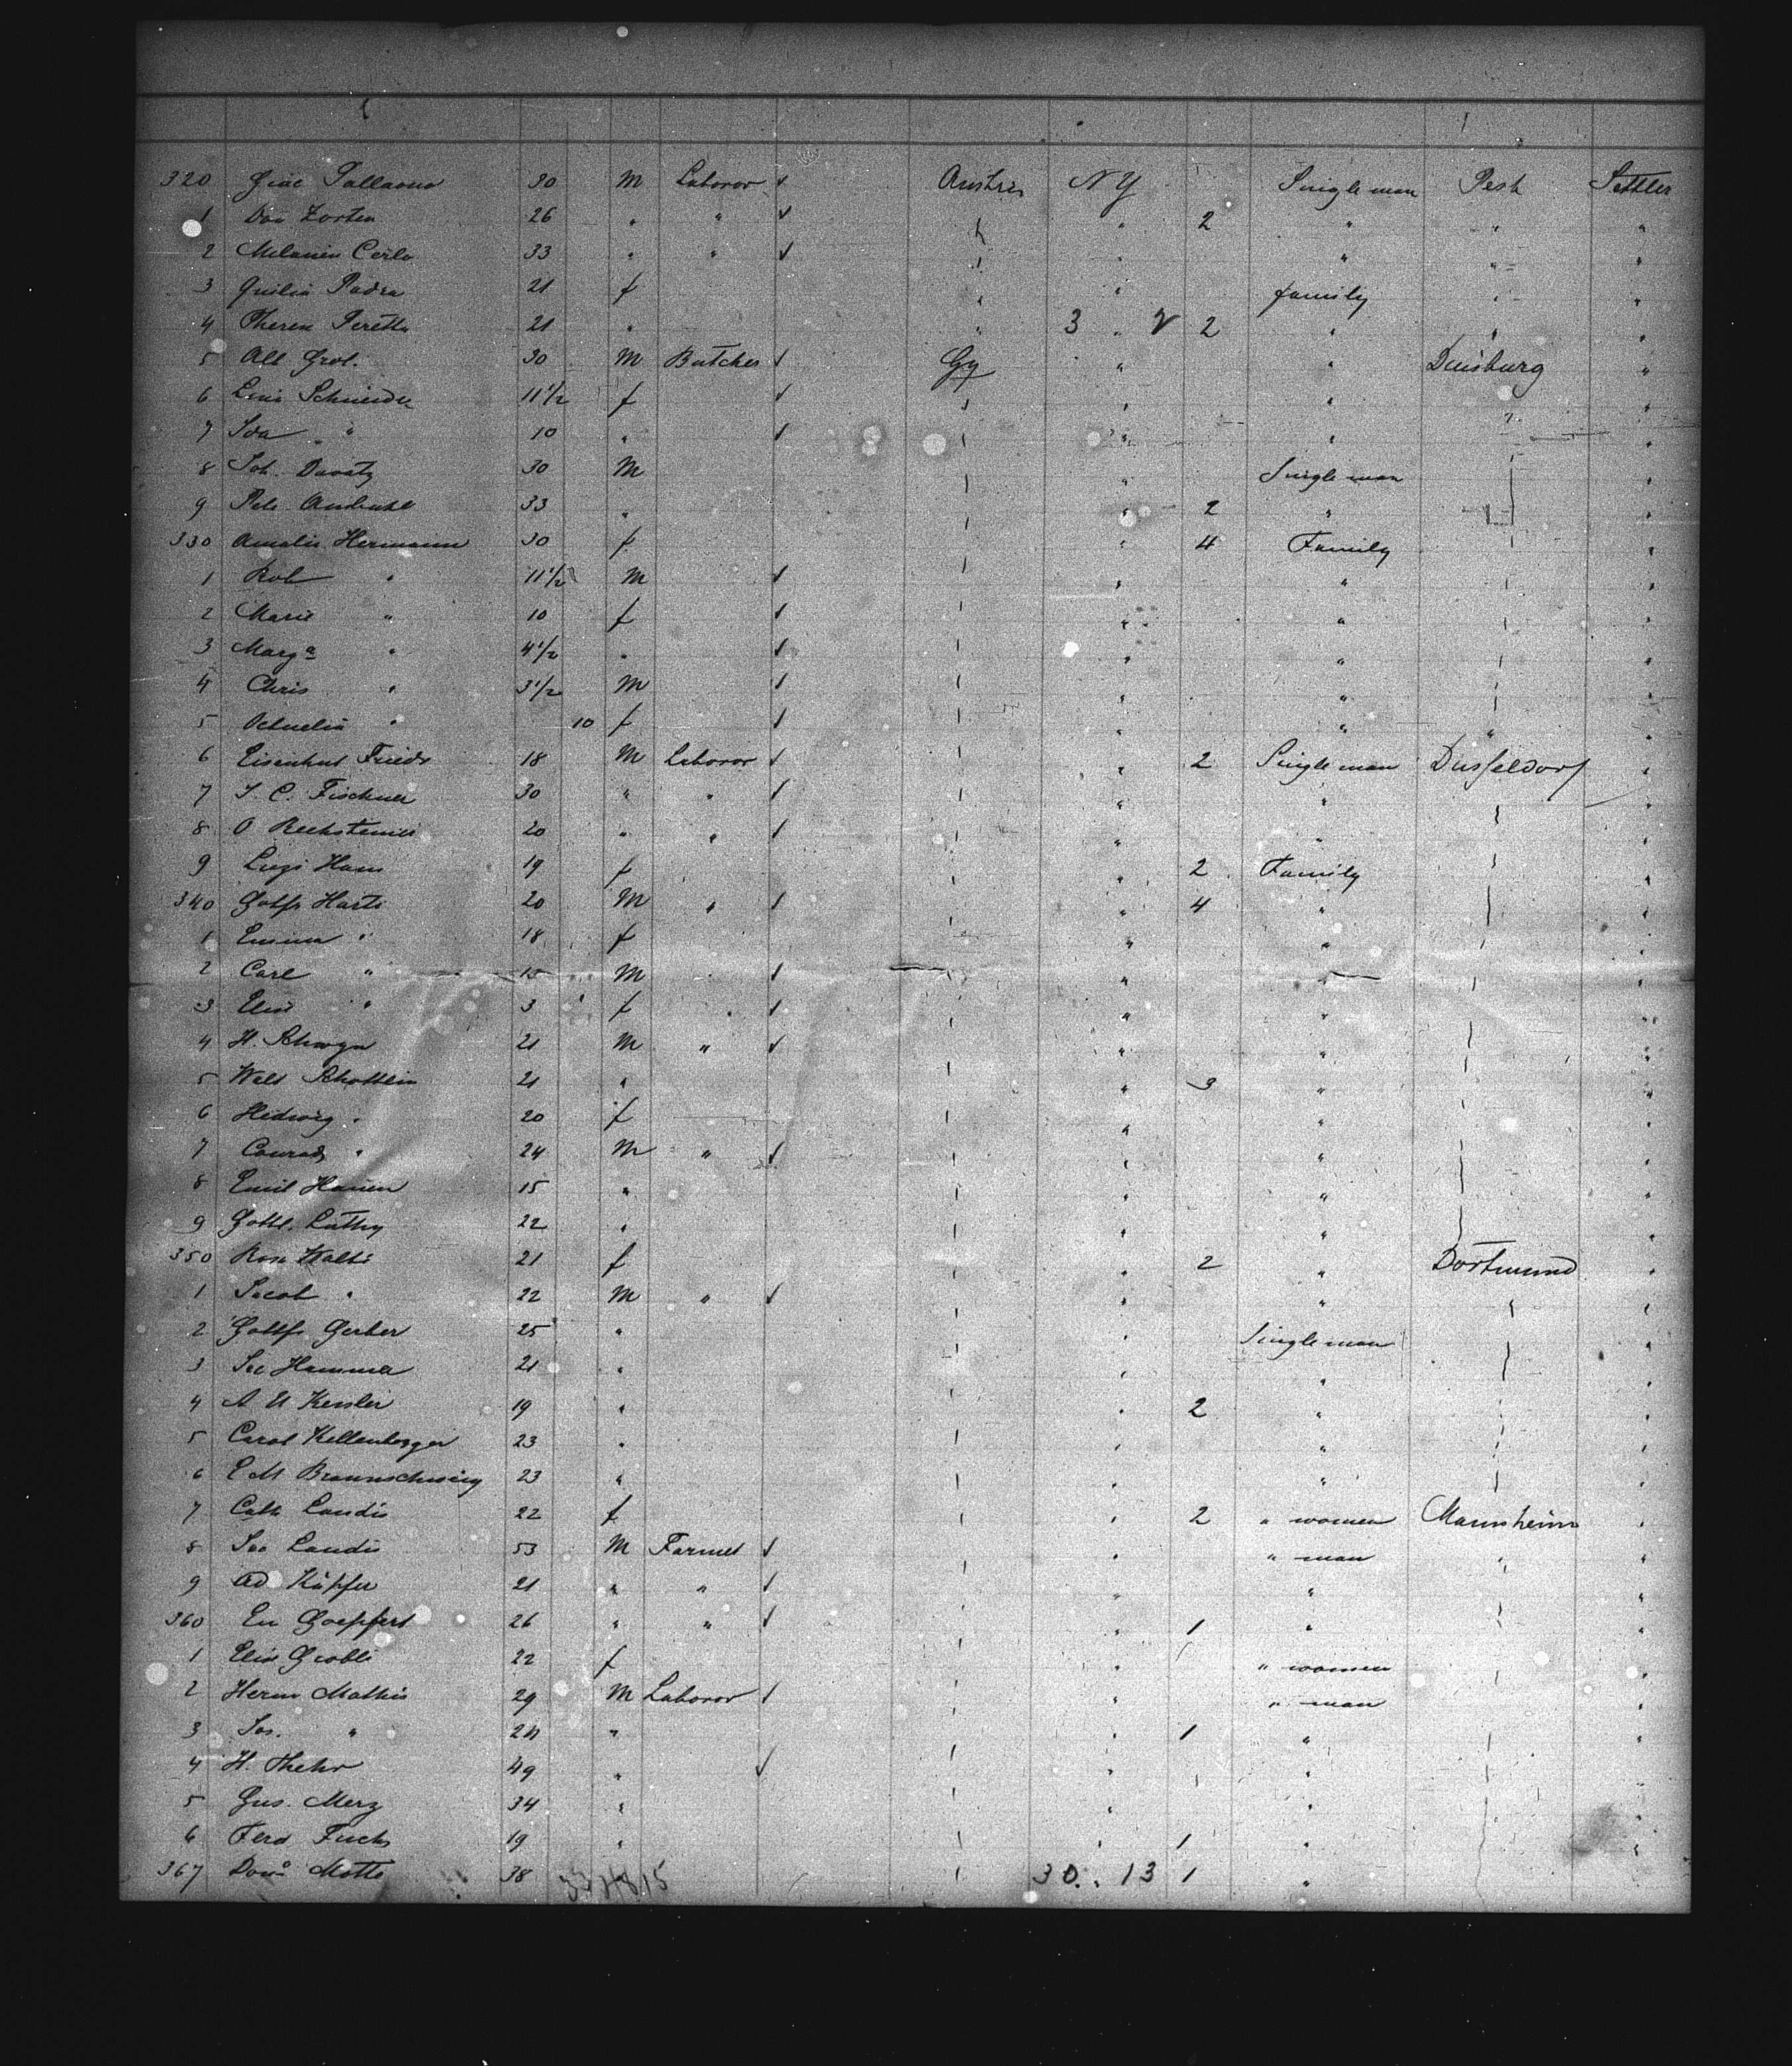 320 Giac Pallaona 30 M Laboror ✓ Austria NY Single man Pesh Settler
1 Dom Zorten 26 " " ✓ " " 2 " " "
2 Melanien Carlo 33 " " ✓ " " " " "
3 Padra 21 f " " family " "
4 Theren Peretta 21 " " 3 " 2 " " "
5 Alb Grob. 30 M Butcher ✓ Gy " " Duisburg "
6 Lina Schneider 11 1/2 f ✓ " " " " "
7 Ida " 10 " ✓ " " " "
8 Joh. Davatz 30 M " " Single man "
9 Pete Ambuhl 33 " " " 2 " "
330 Amalia Hermann 30 f " " 4 Family " "
1 Rob " 11 1/2 M ✓ " " " "
2 Marie " 10 f ✓ " " " " "
3 Marga " 4 1/2 " ✓ " " " " "
4 Chris " 3 1/2 M ✓ " " " " "
5 " 10 f ✓ " " " " "
6 Eisenhut Friedr 18 M Laboror ✓ " " 2 Single man Dusseldorf "
7 J. C. Fischer 30 " " ✓ " " " " "
8 O Rechsteiner 20 " " ✓ " " " "
9 Luzi Ham 19 f " " 2 Family " "
340 Gottfr Harti 20 M " ✓ " " 4 " " "
1 Emma " 18 f " " " " "
2 Carl " 15 M ✓ " " " " "
3 Elise " 3 f ✓ " " " "
4 H. 21 M " ✓ " " " " "
5 Walt Schottlin 21 " " " 3 " "
6 Hedwig " 20 f " " " " "
7 Conrad " 24 M " ✓ " " " " "
8 Emil Hauen 15 " " " " " "
9 Gottl. Luthy 22 " " " " " "
350 Rosa Walti 21 f " " 2 " Dortmund "
1 Jacob " 22 M " ✓ " " " " "
2 Gottfr Gerber 25 " " " Single man "
3 Jac Hammer 21 " " " " " "
4 A U Kessler 19 " " " 2 " " "
5 Carol Kellenberger 23 " " " " " "
6 E M Braunschweig 23 " " " " " "
7 Cath Landis 22 f " " 2 " women Mannheim "
8 Jac Landis 53 M Farmer ✓ " " " man " "
9 Ad Küpfer 21 " " ✓ " " " " "
360 Em Goepfert 26 " " ✓ " " 1 " " "
1 Elise Grobli 22 f " " " women " "
2 Herm Mathis 29 M Laboror ✓ " " " man "
3 Jos. " 24 " " " 1 " " "
4 H. Thehr 49 " ✓ " " " "
5 Gus. Merz 34 " " " " " "
6 Ferd Fuchs 19 " " " 1 " " "
367 Domo Motto 38 " 30. " 13 1 "